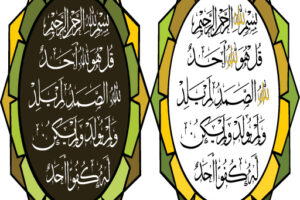 بسم الله الرحمن الرحيم
قل هو الله أحد
الله الصمد لم يلد
ولم يولد ولم يكن
له كفوا أحد
بسم الله الرحمن الرحيم
قل هو الله أحد
الله الصمد لم يلد
ولم يولد ولم يكن
له كفوا أحد